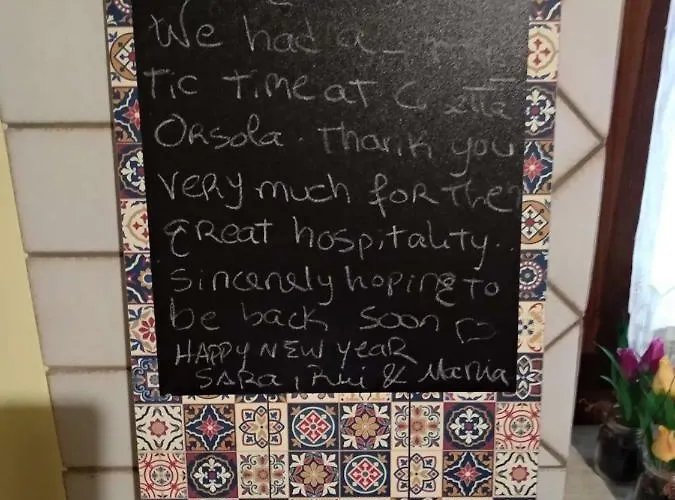 We had a
tic time at
Orsola. Thank you
very much for the
great hospitality.
Sincerely hoping to
be back soon ♡
HAPPY NEW YEAR
SARA, Rui & Maria